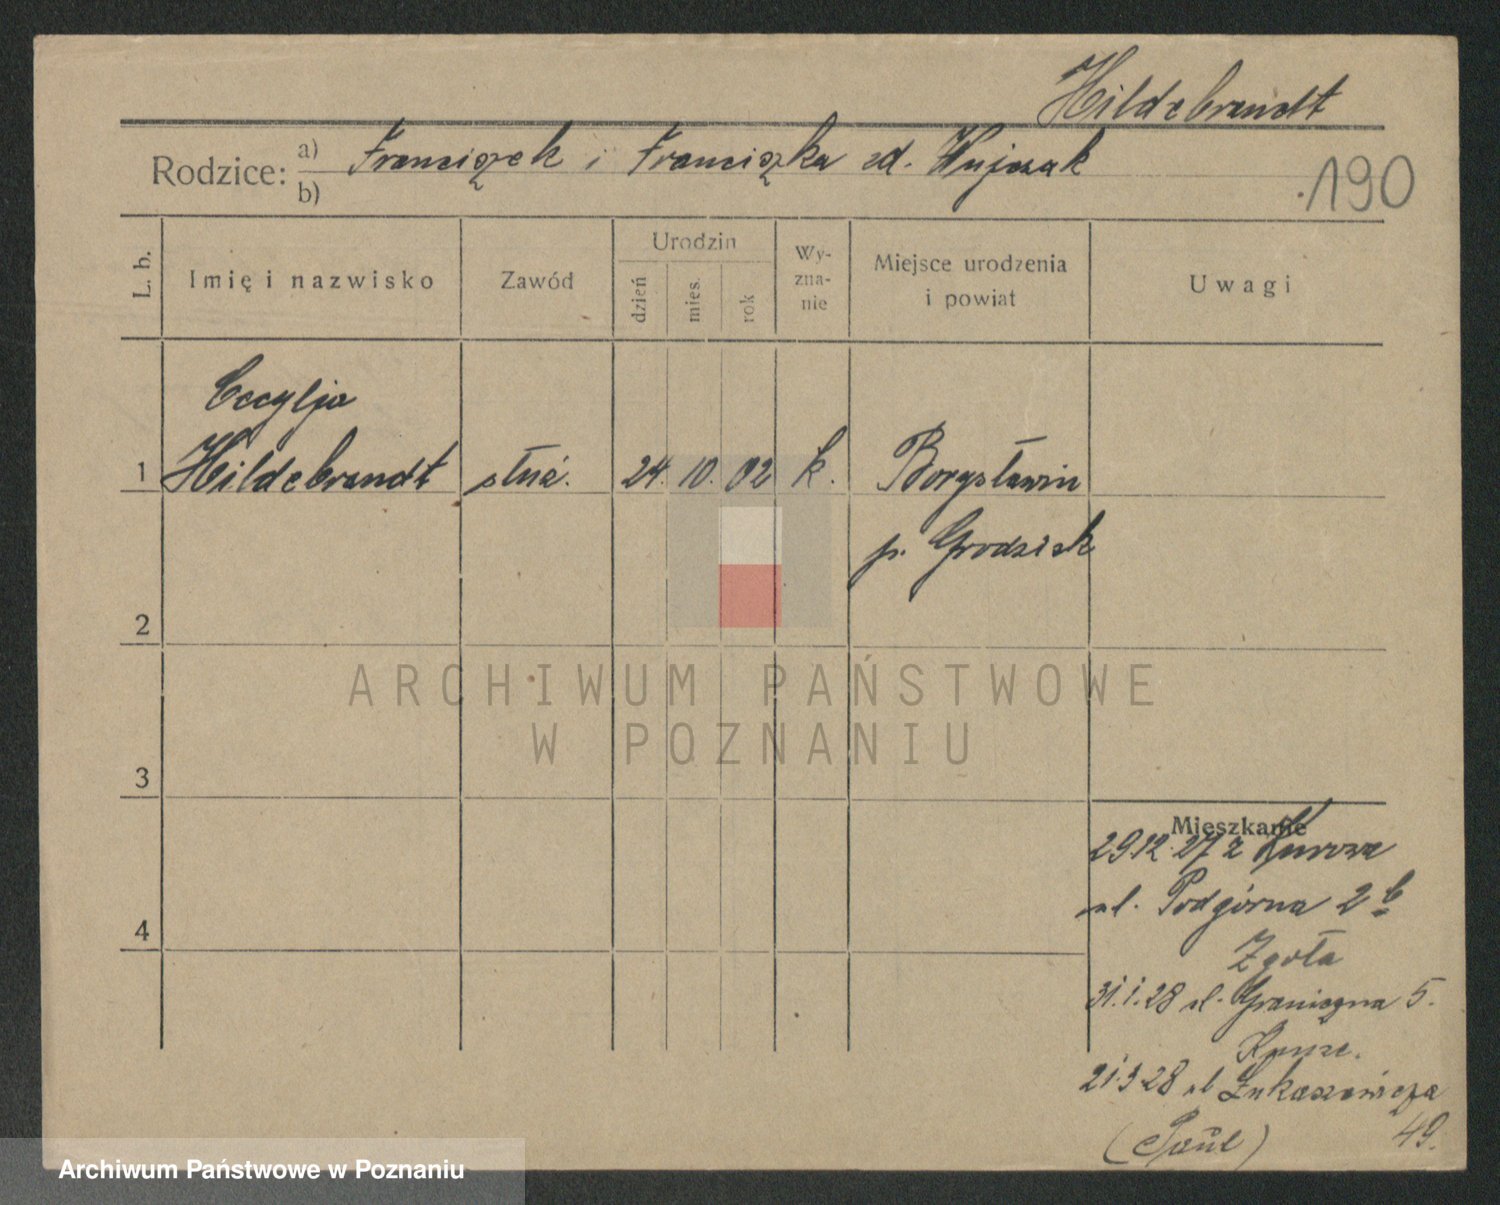 Hildebrandt
Rodzice: a) Franciszek i Franciszka zd. Wujczak
b)
190
L. b.
Imię i nazwisko
Zawód
Urodzin
dzień
mies.
rok
Wy-
zna-
nie
Miejsce urodzenia
i powiat
Uwagi
Cecylja
1 Hildebrandt służ. 24. 10. 02 k. Borysławin
p. Grodzisk
2
ARCHIWUM PAŃSTWOWE
W POZNANIU
3
Mieszkanie
29.12.27 z
ul. Podgórna 2b
4
Zgoła
31.1.28 ul. Graniczna 5.
21.3.28 ul Łukaszewicza
49.
(Paul)
Archiwum Państwowe w Poznaniu